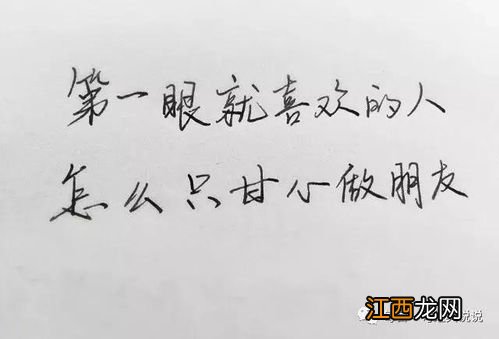 第一眼就喜欢的人
怎么只甘心做朋友
江西龙网
说说